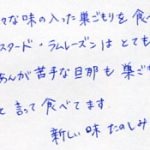 々な味の入った巣ごもりを食べ
スタード・ラムレーズンは とても
あんが苦手な旦那も 巣ご
と 言って 食べてます.
新しい味 たのしみ